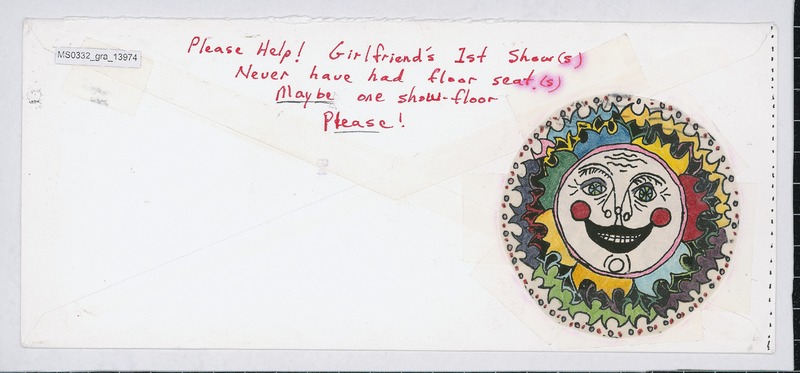 MS0332_gra_13974
Please Help! Girlfriend's 1st Show(s)
Never have had floor seat.(s)
Maybe one show-floor
Please!